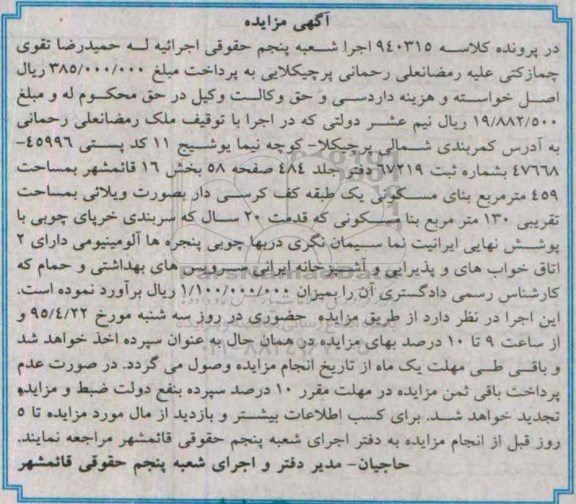 آگهی مزایده
در پرونده کلاسه ۹۴۰۳۱۵ اجرا شعبه پنجم حقوقی اجرائیه له حمیدرضا تقوی
چمازکتی علیه رمضانعلی رحمانی پرچیکلایی به پرداخت مبلغ ۳۸۵/۰۰۰/۰۰۰ ریال
اصل خواسته و هزینه داردسی و حق وکالت وکیل در حق محکوم له و مبلغ
۱۹/۸۸۲/۵۰۰ ریال نیم عشر دولتی که در اجرا با توقیف ملک رمضانعلی رحمانی
به آدرس کمربندی شمالی پرچیکلا- کوچه نیما یوشیج ۱۱ کد پستی ۴۵۹۹۶-
۴۷۶۶۸ بشماره ثبت ۶۷۲۱۹دفتر جلد ۴۸۴ صفحه ۵۸ بخش ۱۶ قائمشهر بمساحت
۴۵۹ مترمربع بنای مسکونی یک طبقه کف کرسی دار بصورت ویلائی بمساحت
تقریبی ۱۳۰ متر مربع بنا مسکونی که قدمت ۲۰ سال که سربندی خرپای چوبی با
پوشش نهایی ایرانیت نما سیمان نگری دربها چوبی پنجره ها آلومینیومی دارای ۲
اتاق خواب های و پذیرایی و آشپزخانه ایرانی سرویس های بهداشتی و حمام که
کارشناس رسمی دادگستری آن را بمیزان ۱/۱۰۰/۰۰۰/۰۰۰ ریال برآورد نموده است.
این اجرا در نظر دارد از طریق مزایده حضوری در روز سه شنبه مورخ ۹۵/۴/۲۲ و
از ساعت ۹ تا ۱۰ درصد بهای مزایده در همان حال به عنوان سپرده اخذ خواهد شد
و باقی طی مهلت یک ماه از تاریخ انجام مزایده وصول می گردد. در صورت عدم
پرداخت باقی ثمن مزایده در مهلت مقرر ۱۰ درصد سپرده بنفع دولت ضبط و مزایده
تجدید خواهد شد. برای کسب اطلاعات بیشتر و بازدید از مال مورد مزایده تا ۵
روز قبل از انجام مزایده به دفتر اجرای شعبه پنجم حقوقی قائمشهر مراجعه نمایند.
حاجیان- مدیر دفتر و اجرای شعبه پنجم حقوقی قائمشهر